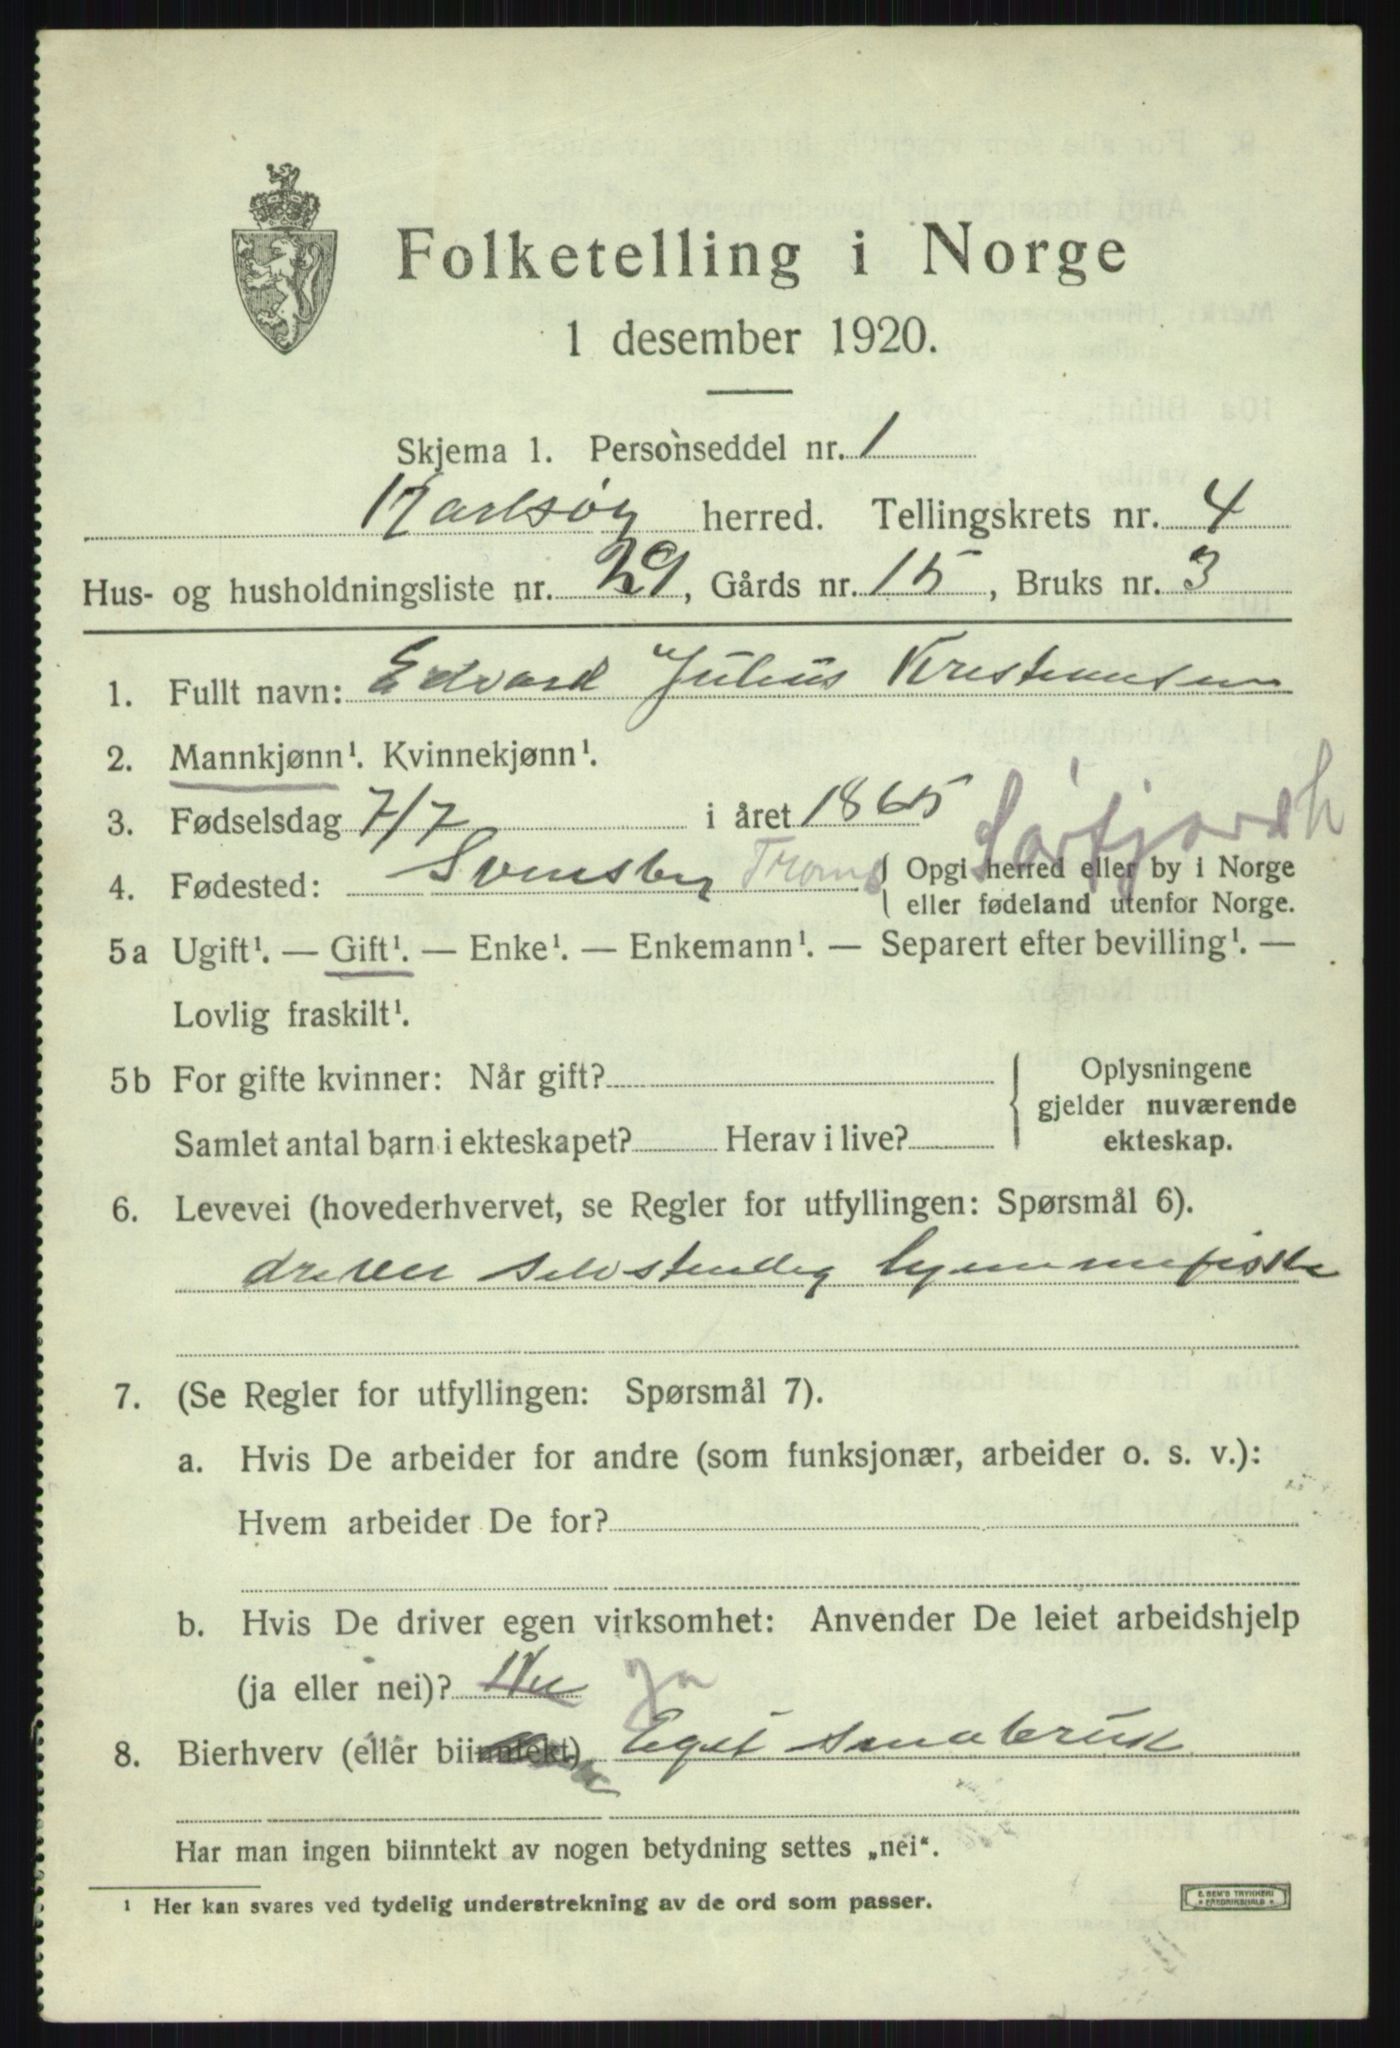 Folketelling i Norge
1 desember 1920.
Skjema 1. Personseddel nr. 1
Karlsøy herred. Tellingskrets nr. 4
Hus- og husholdningsliste nr. 29, Gårds nr. 15, Bruks nr. 3
1. Fullt navn: Edvard Julius Kristiansen
2. Mannkjønn¹. Kvinnekjønn¹.
3. Fødselsdag 7/7 i året 1865 Sørfjord h
4. Fødested: Svensby Troms Opgi herred eller by i Norge
eller fødeland utenfor Norge.
5a Ugift¹. — Gift¹. — Enke¹. — Enkemann¹. — Separert efter bevilling¹. —
Lovlig fraskilt¹.
5b For gifte kvinner: Når gift? Oplysningene
gjelder nuværende
Samlet antal barn i ekteskapet? Herav i live? ekteskap.
6. Levevei (hovederhvervet, se Regler for utfyllingen: Spørsmål 6).
driver selvstendig hjemmefiske
7. (Se Regler for utfyllingen: Spørsmål 7).
a. Hvis De arbeider for andre (som funksjonær, arbeider o. s. v.):
Hvem arbeider De for?
b. Hvis De driver egen virksomhet: Anvender De leiet arbeidshjelp
(ja eller nei)? Nei Ja
8. Bierhverv (eller biinntekt) Eget smabruk
Har man ingen biinntekt av nogen betydning settes „nei“.
¹ Her kan svares ved tydelig understrekning av de ord som passer.
E. SEM'S TRYKKERI
FREDRIKSHALD